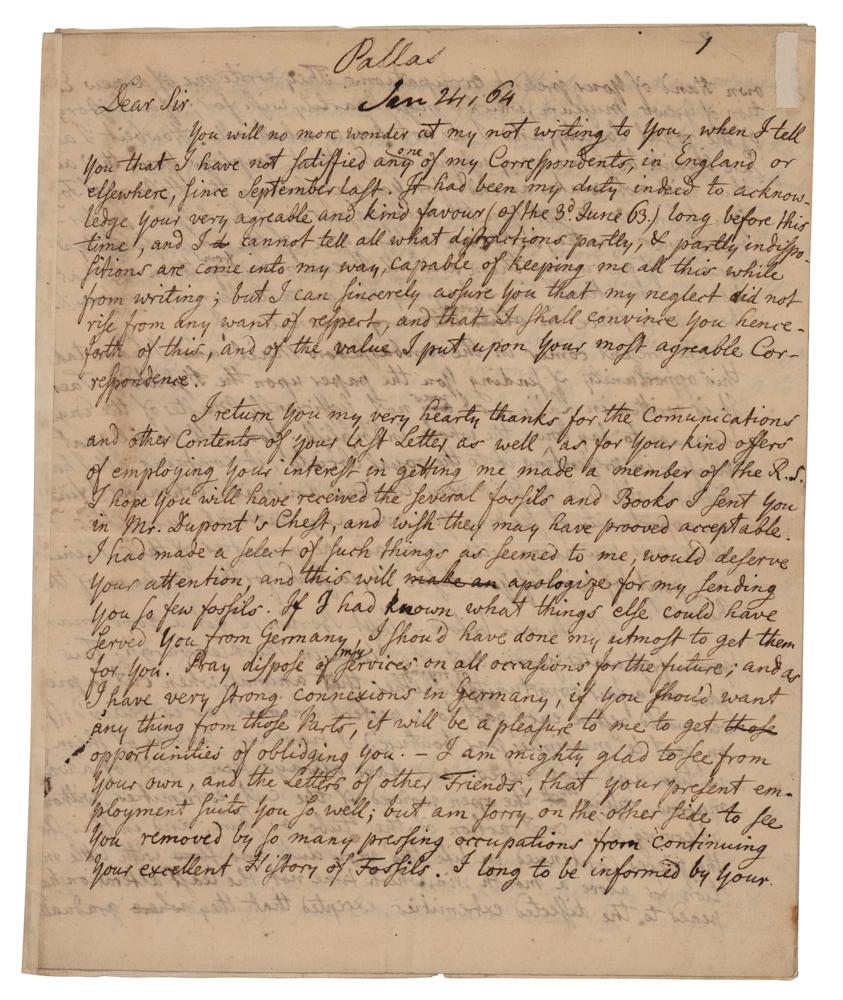 Pallas
1
Dear Sir
Jan 24, 64
You will no more wonder at my not writing to You, when I tell
You that I have not satisfied any one of my Correspondents, in England or
elsewhere, since September last. It had been my duty indeed to acknow-
ledge Your very agreable and kind favour (of the 3d June 63.) long before this
time, and I cannot tell all what distractions partly, & partly indispo-
sitions are come into my way, capable of keeping me all this while
from writing; but I can sincerely assure You that my neglect did not
rise from any want of respect, and that I shall convince You hence-
forth of this, and of the value I put upon Your most agreable Cor-
respondence.
I return You my very hearty thanks for the Comunications
and other Contents of Your last Letter as well, as for Your kind offers
of employing Your interest in getting me made a member of the R.S.
I hope You will have received the several fossils and Books I sent You
in Mr. Dupont's Chest, and wish they may have prooved acceptable.
I had made a select of such things as seemed to me, would deserve
Your attention, and this will make an apologize for my sending
You so few fossils. If I had known what things else could have
served You from Germany, I shou'd have done my utmost to get them
for You. Pray dispose of my services on all occasions for the future; and as
I have very strong connexions in Germany, if You should want
any thing from those Parts, it will be a pleasure to me to get those
opportunities of oblidging You. – I am mighty glad to see from
Your own, and the Letters of other Friends, that Your present em-
ployment suits You so well; but am sorry on the other side to see
You removed by so many pressing occupations from continuing
Your excellent History of Fossils. I long to be informed by Your